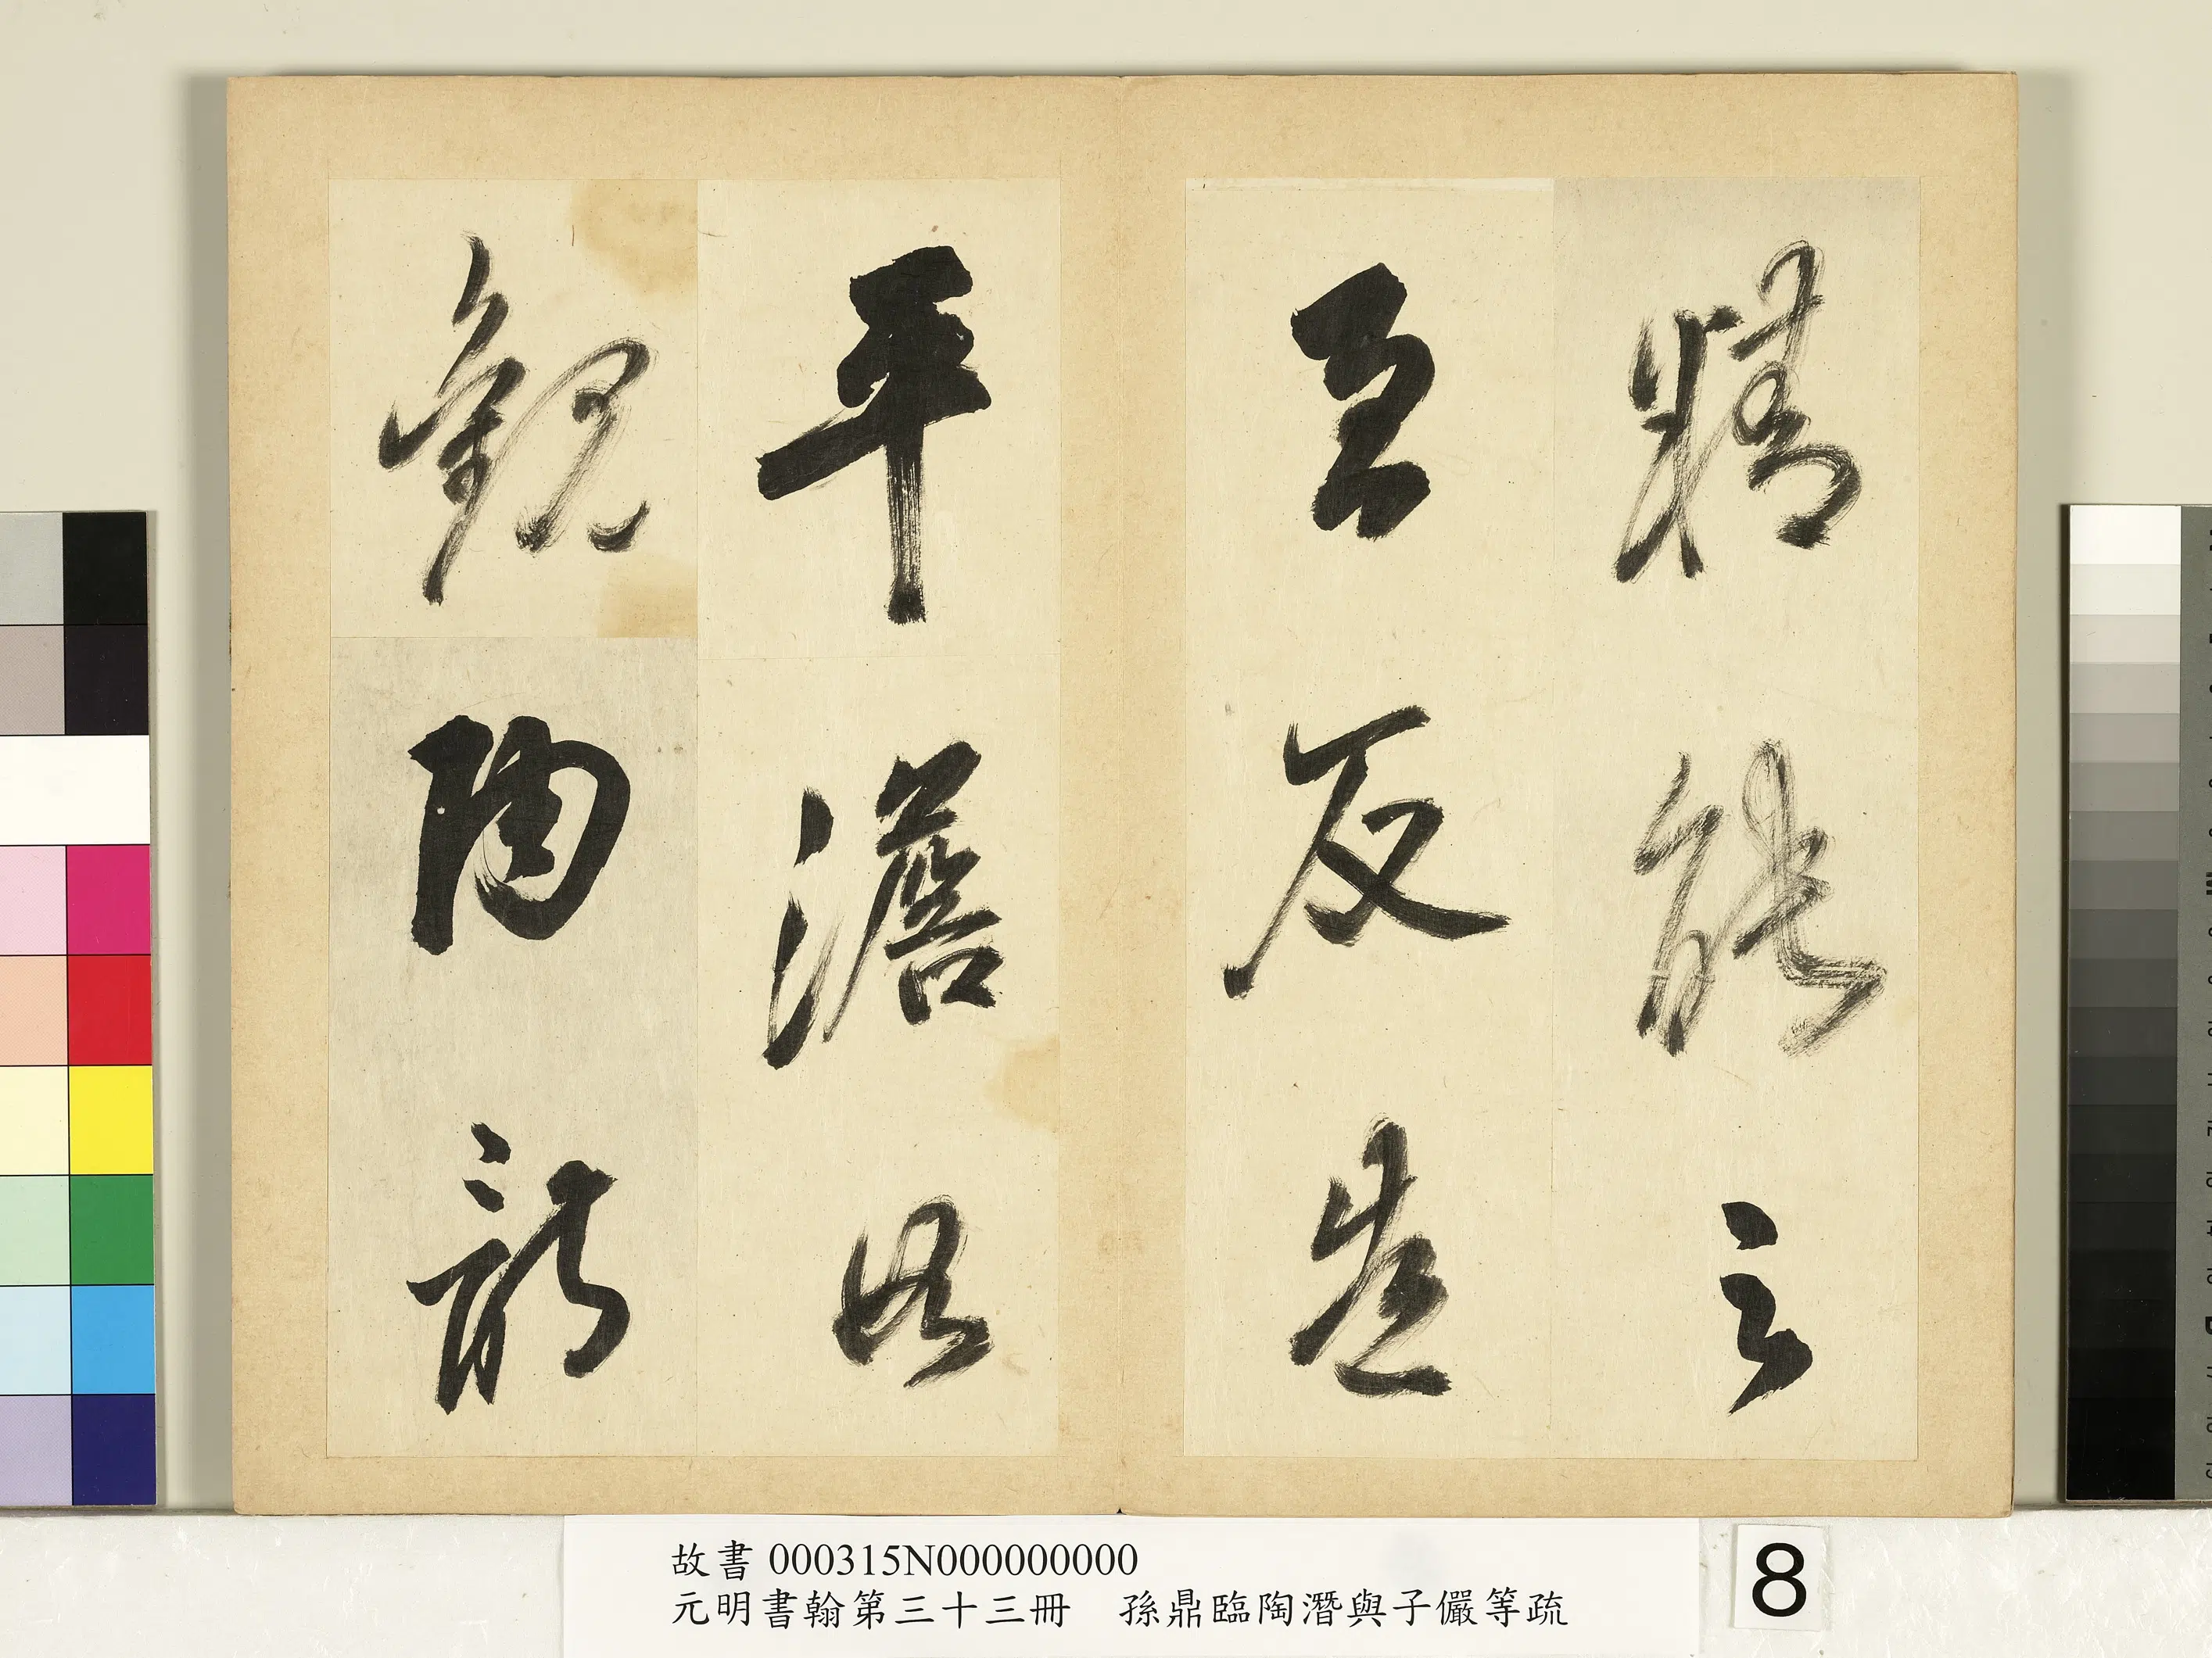 精能之
至反造
平澹
觀陶
故書 000315N000000000
元明書翰第三十三冊　孫鼎臨陶潛與子儼等疏
8